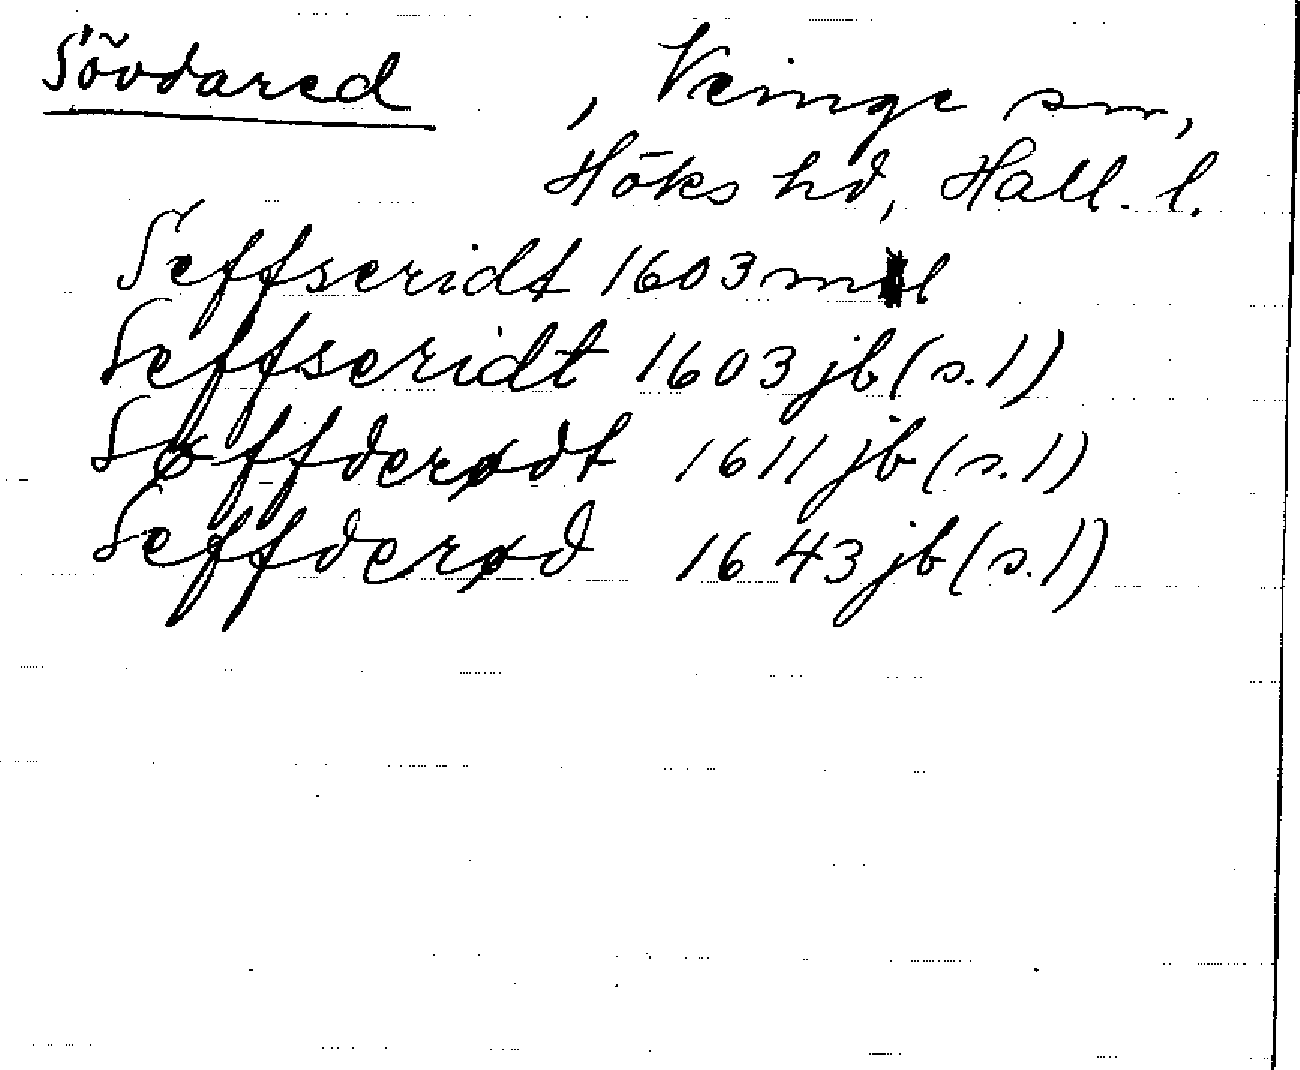 Sövdared , Veinge sn,
Höks hd, Hall. l.
Seffseridt 1603 ml
Seffseridt 1603 jb (s. 1)
Søffderødt 1611 jb (s. 1)
Seffderød 1643 jb (s. 1)